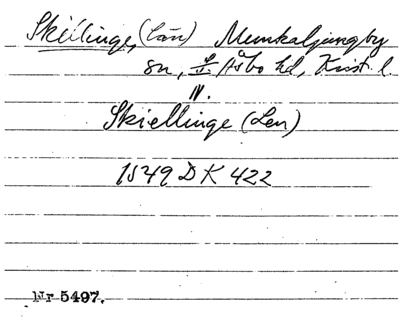 Skillinge, (Län) Munkaljungby
sn, Åsbo hd, Krist. l.
N.
Skiellinge (Len)
1549 DK 422
Nr 5497.